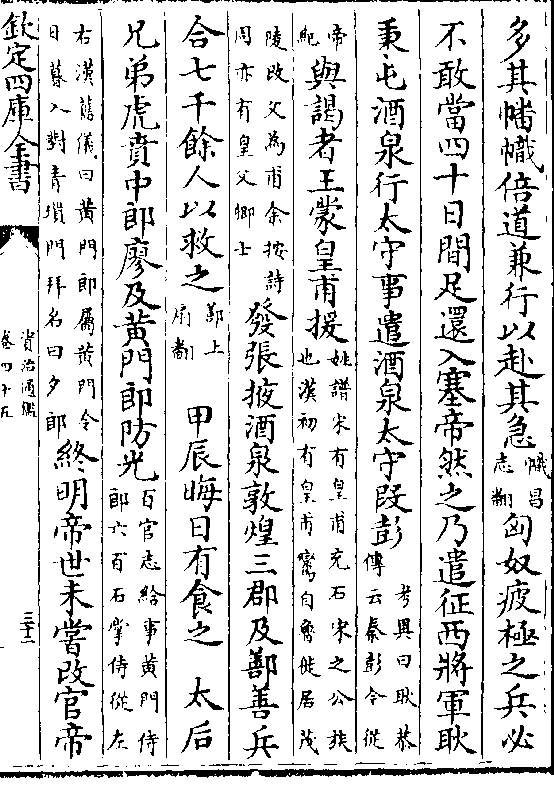 多其幡幟倍道兼行以赴其急幟昌志翻匈奴疲極之兵必
不敢當四十日間足還入塞帝然之乃遣征西將軍耿
秉屯酒泉行太守事遣酒泉太守段彭考異曰耿恭傳云秦彭今從
帝紀與謁者王蒙皇甫援姓譜宋有皇甫充石宋之公族也漢初有皇甫鸞自魯徙居茂
陵改父為甫余按詩周亦有皇父卿士發張掖酒泉敦煌三郡及鄯善兵
合七千餘人以救之鄯上扇翻 甲辰晦日有食之 太后
兄弟虎賁中郎廖及黃門郎防光百官志給事黃門侍郎六百石掌侍從左
右漢舊儀曰黃門郎屬黃門令日暮入對青瑣門拜名曰夕郎終明帝世未嘗改官帝
欽定四庫全書
資治通鑑
卷四十五
三十二